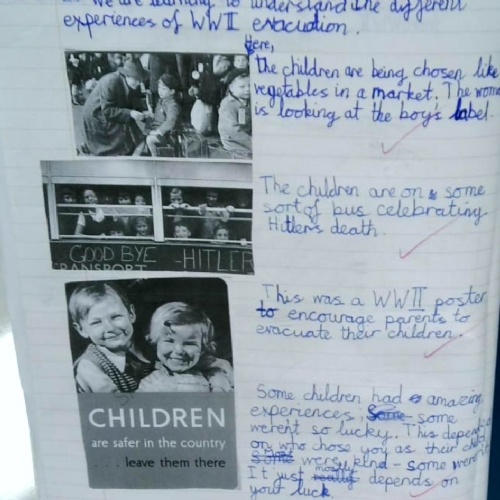 We are learning to understand the different
experiences of WWII evacuation.
Here,
the children are being chosen like
vegetables in a market. The
is looking at the boy's label.
The children are on some
sort of bus celebrating
Hitler's death.
GOOD BYE - HITLER
TRANSPORT
This was a WWII poster
to encourage parents to
evacuate their children.
CHILDREN
are safer in the country
. . . leave them there
Some children had amazing
experiences, some
werent so lucky. This
on who chose you as their
were kind - some
It just mostly depends on
your luck